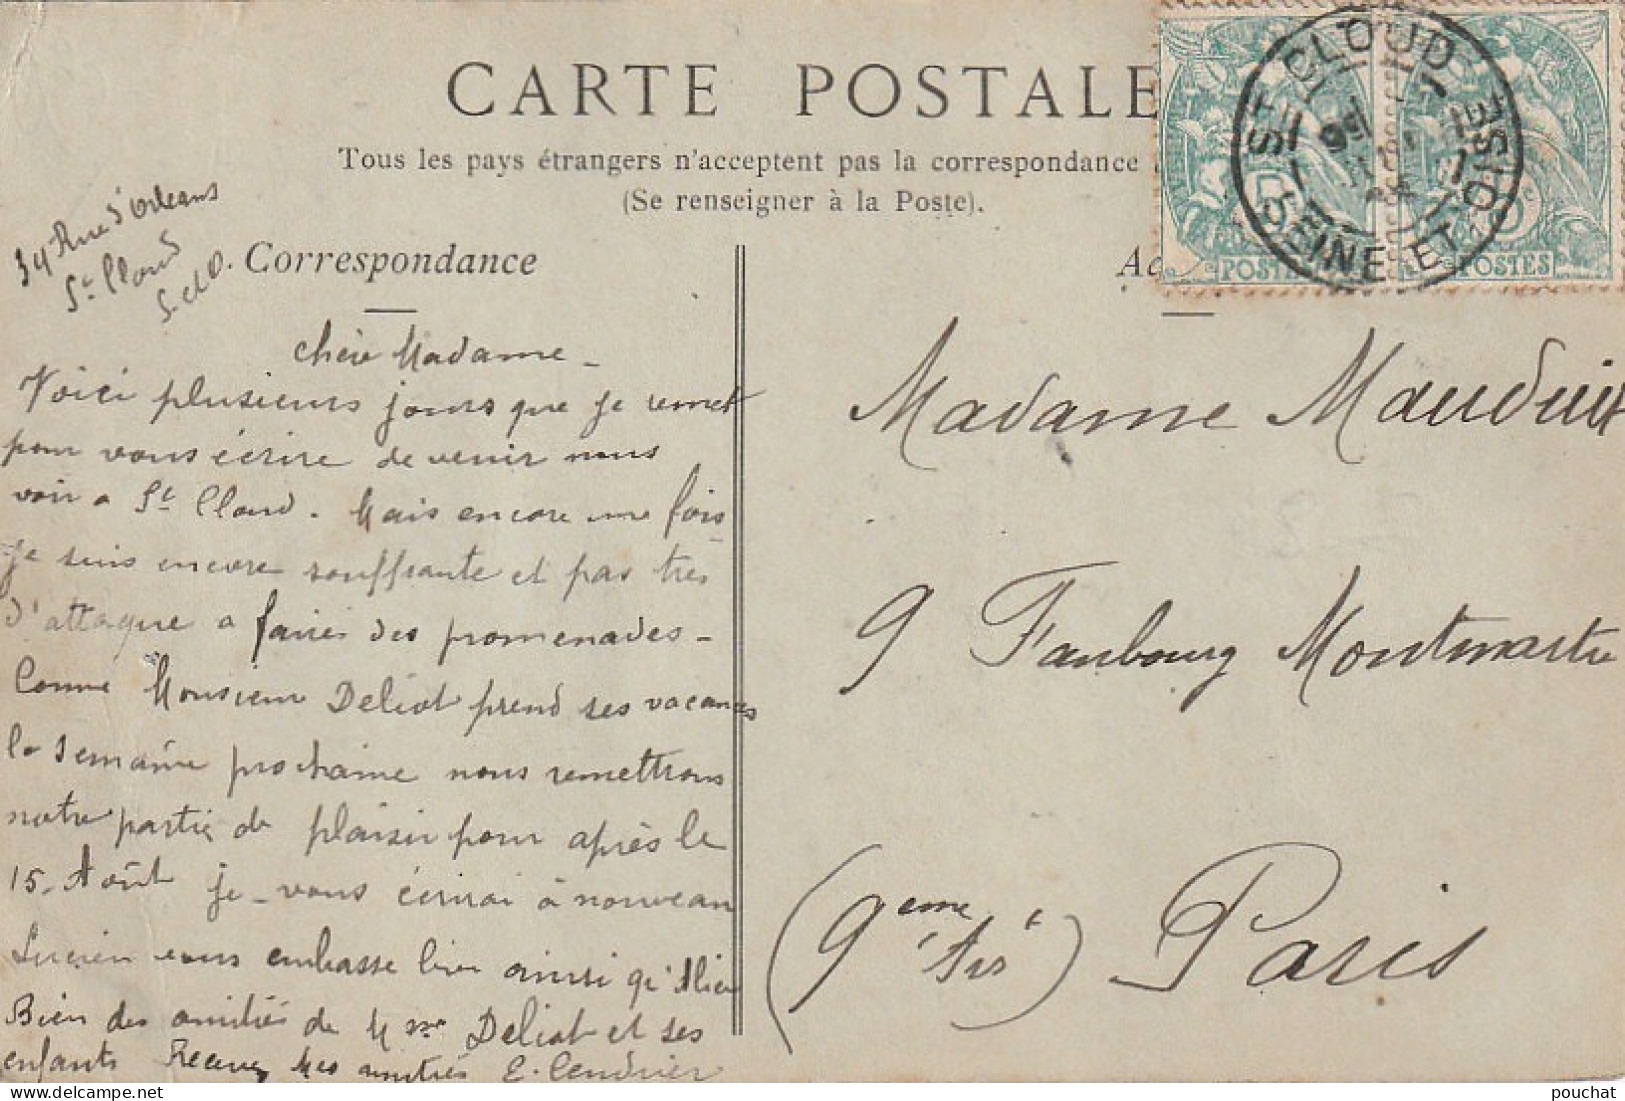 CARTE POSTALE
Tous les pays étrangers n'acceptent pas la correspondance
(Se renseigner à la Poste).
34 Rue d'Orléans
St Cloud
S. et O.
Correspondance
chère Madame _
Voici plusieurs jours que je remet
pour vous écrire de venir nous
voir a St Cloud. Mais encore une fois
je suis encore souffrante et pas très
d'attaque a faire des promenades -
Comme Monsieur Deliot prend ses vacances
la semaine prochaine nous remettrons
notre partie de plaisir pour après le
15 Août je vous écrirai à nouveau
Lucien vous embasse bien ainsi qu'Alice
Bien des amitiés de Mme Deliot et ses
enfants Recevez mes amitiés E. Cendrier
ST CLOUD
SEINE ET OISE
POSTES
POSTES
Madame Mauduit
9 Faubourg Montmartre
(9eme Arr) Paris
pouchat